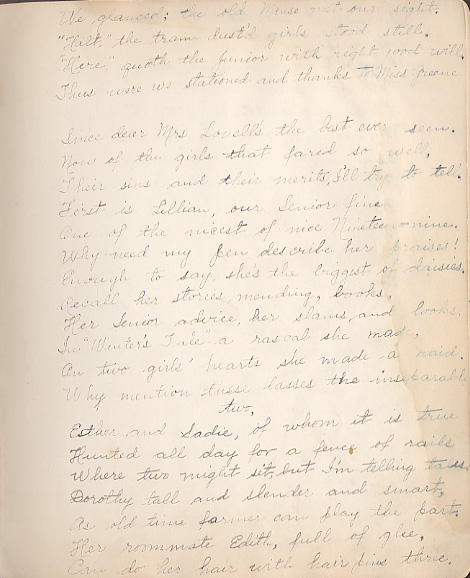 We glanced; the old Manse met our sight.
"Halt," the tram dust'd girls stood still.
"Here," quoth the junior with right good will.
Thus were we stationed and thanks to Miss Greene
Since dear Mrs Lovell's the best ever seen.
Now of the girls that fared so well,
Their sins and their merits, I'll try to tell.
First is Lillian, our Senior fine
One of the nicest of nice Nineteen-nine.
Why need my pen describe her praises!
Enough to say, she's the biggest of daisies.
Recall her stories, mending, books,
Her Senior advice, her slams, and looks.
In "Winter's Tale" a rascal she made,
On two girls' hearts she made a raid.
Why mention these lasses the inseparable
two,
Esther and Sadie, of whom it is true
Hunted all day for a fence of rails
Where two might sit, but I'm telling tales
Dorothy tall and slender and smart,
As old time farmer can play the part.
Her roommate Edith, full of glee,
Can do her hair with hair pins three.